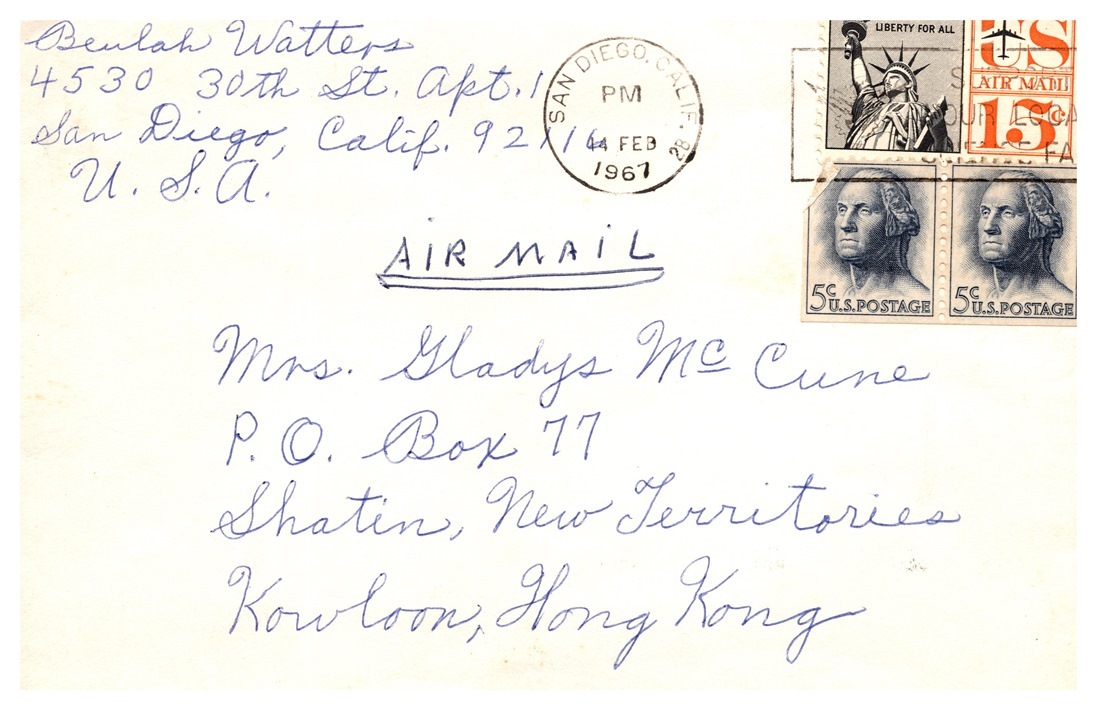 Beulah Watters
4530 30th St. Apt. 1
San Diego, Calif. 92116
U. S. A.
SAN DIEGO, CALIF. 28
PM
14 FEB
1967
LIBERTY FOR ALL
US
AIR MAIL
15c
OUR LOCA
FA
5c U.S. POSTAGE
5c U.S. POSTAGE
AIR MAIL
Mrs. Gladys Mc Cune
P. O. Box 77
Shatin, New Territories
Kowloon, Hong Kong